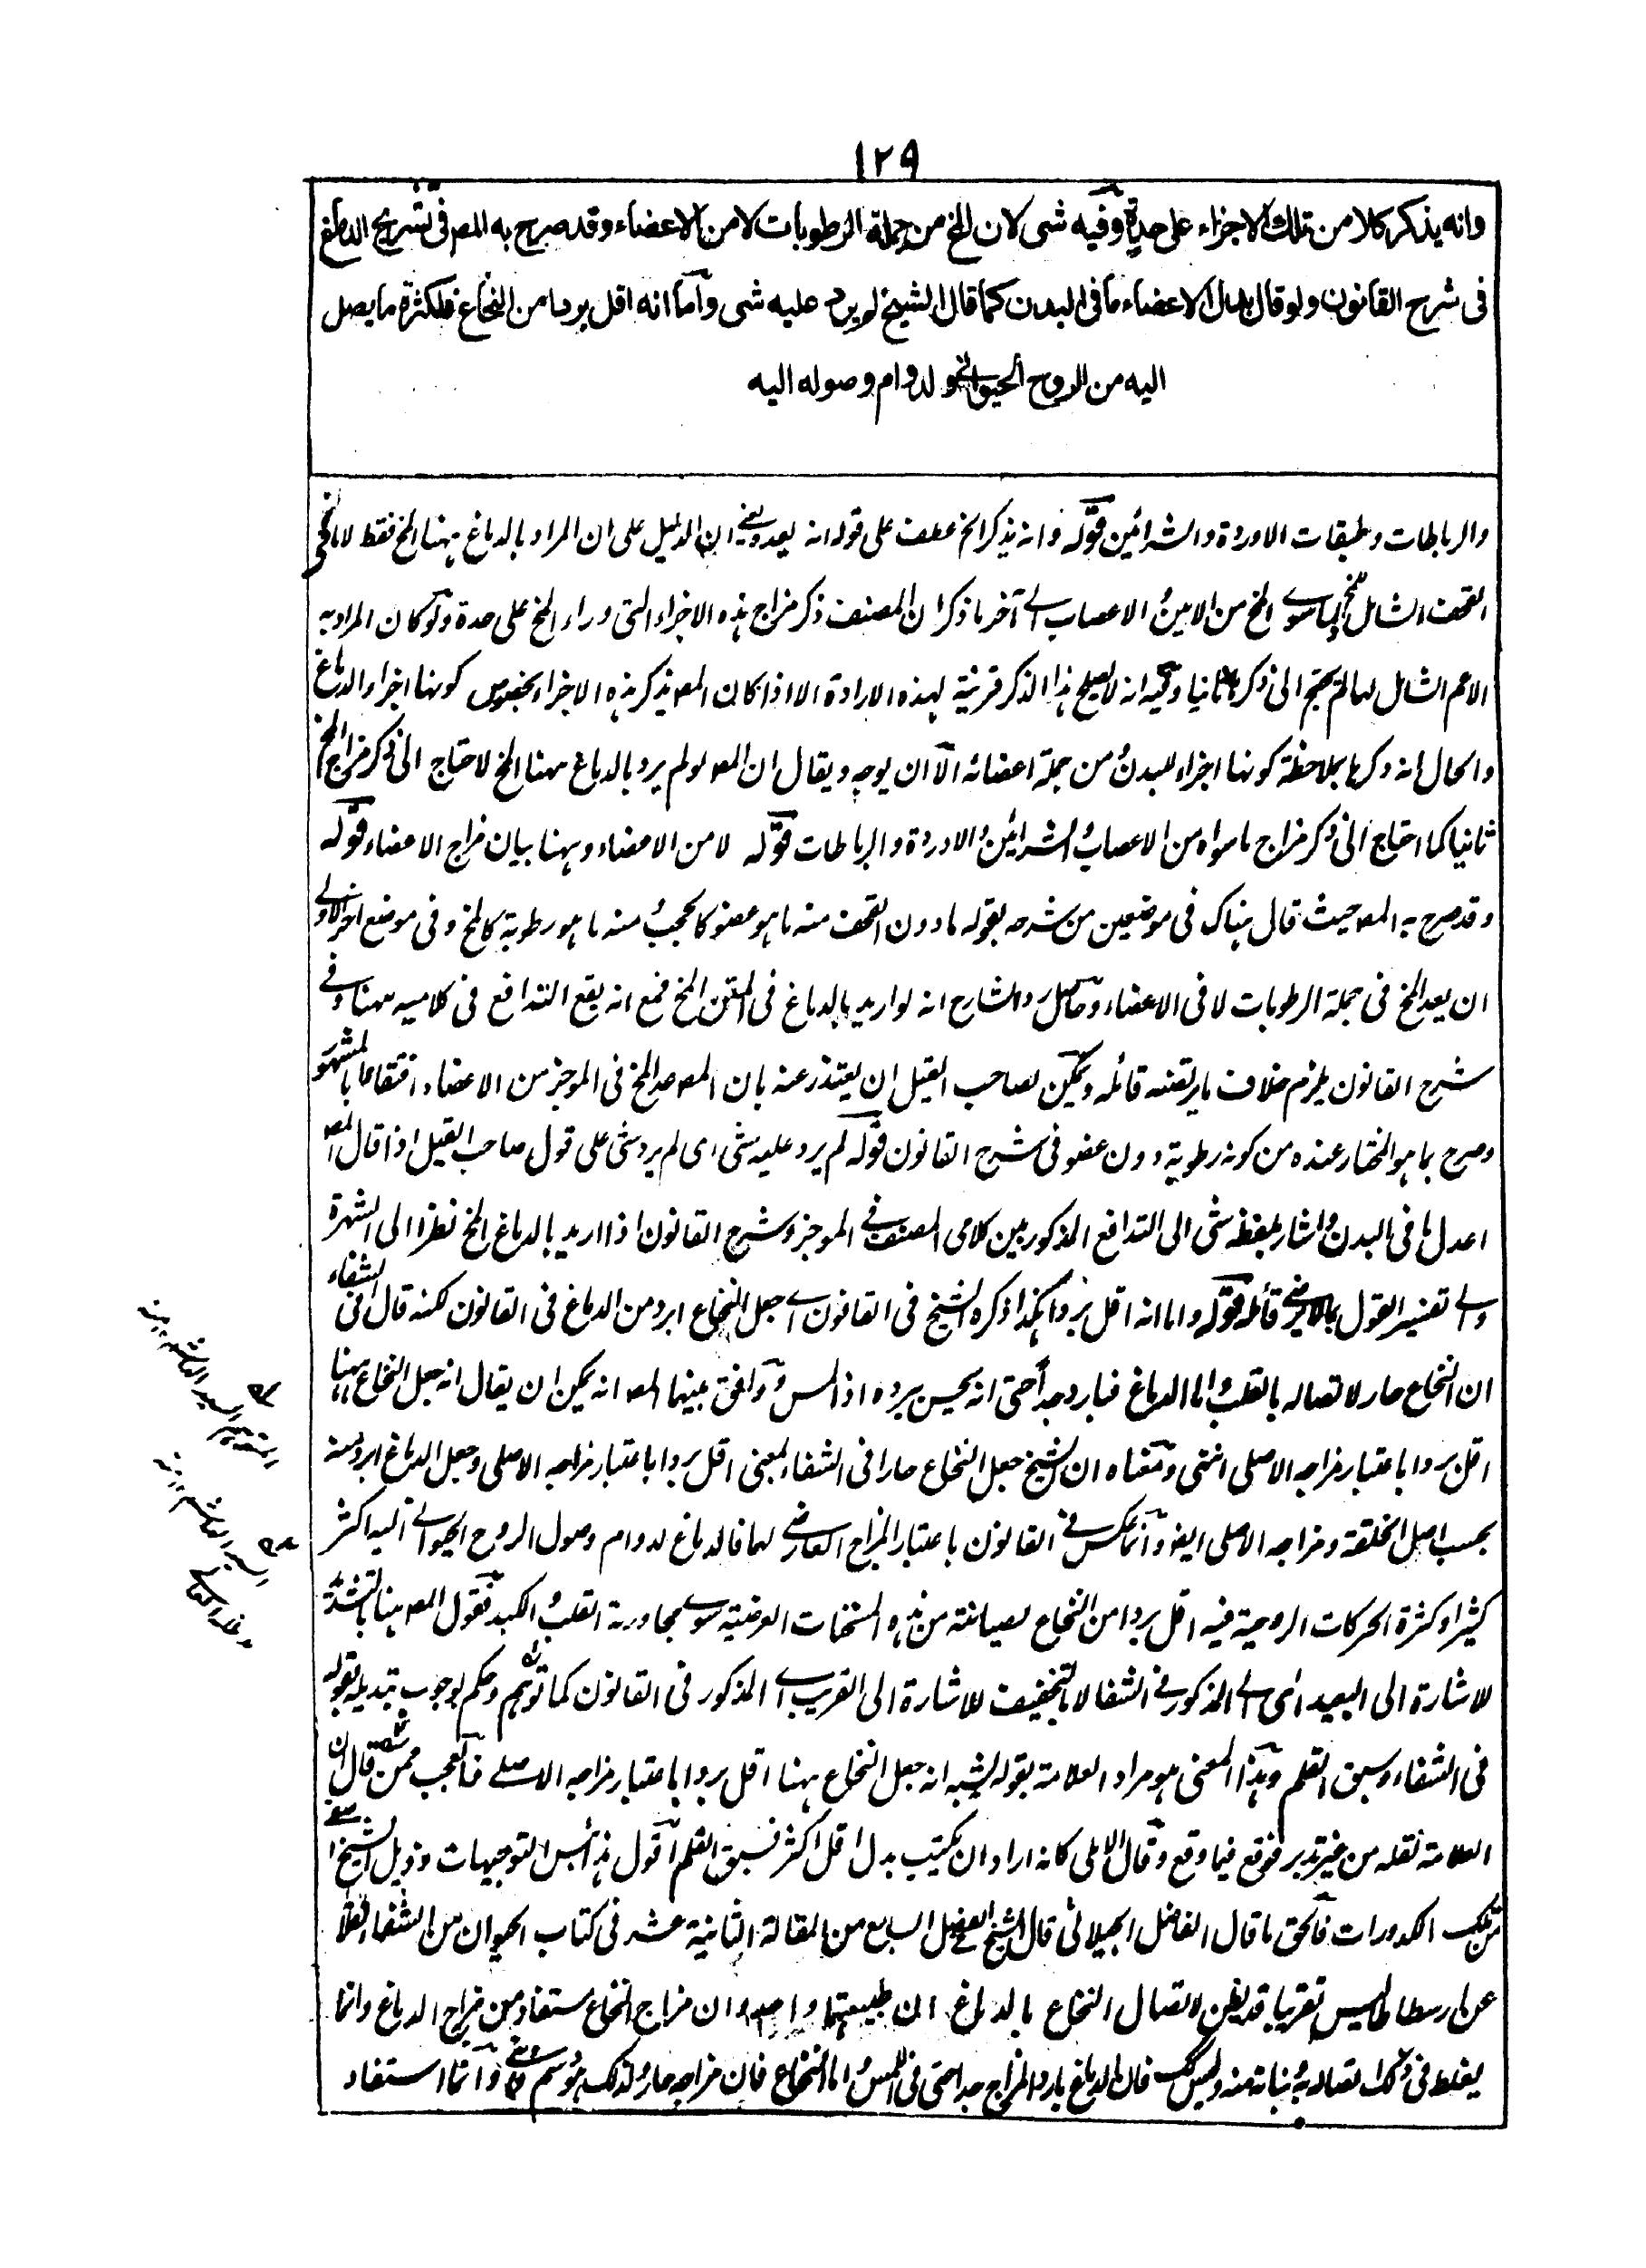 ١٢٩
وانه يذكر كلا من تلك الاجزاء على حدة وفيه شى لان المخ من جملة الرطوبات لا من الاعضاء وقد صرح به المص فى تشريح الدماغ
فى شرح القانون ولو قال بدل الاعضاء ما فى البدن كما قال الشيخ لم يرد عليه شى واما انه اقل بردا من النخاع فلكثرة ما يصل
اليه من الروح الحيوانى ولدوام وصوله اليه
والرباطات وطبقات الاوردة والشرائين قوله وانه يذكر الخ عطف على قوله انه يعد يعنى ان الدليل على ان المراد بالدماغ ههنا المخ فقط لا ما فى
القحف الشامل للمخ ولما سوى المخ من الامين والاعصاب الى آخر ما ذكر ان المصنف ذكر مزاج هذه الاجزاء التى وراء المخ على حدة ولو كان المراد به
الاعم الشامل لها لم يحتج الى ذكرها ثانيا وفيه انه لا يصلح هذا الذكر قرينة لهذه الارادة الا اذا كان المص يذكر هذه الاجزاء بخصوص كونها اجزاء الدماغ
والحال انه ذكرها بملاحظة كونها اجزاء للبدن ومن جملة اعضائه الا ان يوجه ويقال ان المص لو لم يرد بالدماغ ههنا المخ لاحتاج الى ذكر مزاج المخ
ثانيا كما احتاج الى ذكر مزاج ما سواه من الاعصاب والشرائين والاوردة والرباطات قوله لا من الاعضاء وههنا بيان مزاج الاعضاء قوله
وقد صرح به المص حيث قال هناك فى موضعين من شرحه بقوله ما دون القحف منه ما هو عضو كالحجب ومنه ما هو رطوبة كالمخ وفى موضع اخر الاولى
ان يعد المخ فى جملة الرطوبات لا فى الاعضاء وحاصل رد الشارح انه لو اريد بالدماغ فى المتن المخ فمع انه يقع التدافع فى كلاميه ههنا وفى
شرح القانون يلزم خلاف ما يرتضيه قائله ويمكن لصاحب القيل ان يعتذر عنه بان المص عد المخ فى الموجز من الاعضاء اقتفاء بالمشهور
وصرح بما هو المختار عنده من كونه رطوبة دون عضو فى شرح القانون قوله لم يرد عليه شى اى لم يرد شى على قول صاحب القيل اذا قال المص
اعدل ما فى البدن واشار بلفظة شى الى التدافع المذكور بين كلامى المصنف فى الموجز وشرح القانون اذا اريد بالدماغ المخ نظرا الى الشهرة
والى تفسير القول بما لا يرضى قائله قوله واما انه اقل بردا هكذا ذكره الشيخ فى القانون اى جعل النخاع ابرد من الدماغ فى القانون لكنه قال فى الشفاء
ان النخاع حار لاتصاله بالقلب واما الدماغ فبارد جدا حتى انه يحس برده اذا لمس ووافق بينهما المص انه يمكن ان يقال انه جعل النخاع ههنا
اقل بردا باعتبار مزاجه الاصلى انتهى ومعناه ان الشيخ جعل النخاع حارا فى الشفاء بمعنى اقل بردا باعتبار مزاجه الاصلى وجعل الدماغ ابرد منه
بحسب اصل الخلقة ومزاجه الاصلى ايضا وانما عكس فى القانون باعتبار المزاج العارضى لهما فالدماغ لدوام وصول الروح الحيوانى اليه اكثر
كثيرا وكثرة الحركات الروحية فيه اقل بردا من النخاع لصيانته من هذه المسخنات العرضية سوى مجاورة القلب والكبد فقول المص ههنا بالتشديد
للاشارة الى البعيد اى الى المذكور فى الشفا لا بالتخفيف للاشارة الى القريب اى المذكور فى القانون كما توهم وحكم لوجوب تبديله بقوله
فى الشفاء وسبق القلم وهذا المعنى هو مراد العلامة بقوله يشبه انه جعل النخاع ههنا اقل بردا باعتبار مزاجه الاصلى فالعجب ممن قال ان
العلامة نقله من غير تدبر فوقع فيما وقع وقال الاملى كانه اراد ان يكتب بدل اقل اكثر فسبق القلم اقول هذا شبس التوجيهات وذيل الشيخ اصفى
من تلك الكدورات فالحق ما قال الفاضل الجيلانى قال الشيخ فى الفصل السابع من المقالة الثانية عشر فى كتاب الحيوان من الشفاء نقلا
عن ارسطاطاليس تقريبا قد يظن لاتصال النخاع بالدماغ ان طبيعتهما واحدة وان مزاج النخاع مستفاد من مزاج الدماغ وانما
يغلط فى ذلك اتصاله به ونباته منه وليس كذلك فان الدماغ بارد المزاج جدا حتى فى اللمس واما النخاع فان مزاجه حار ولذلك هو دسم وانما استفاد